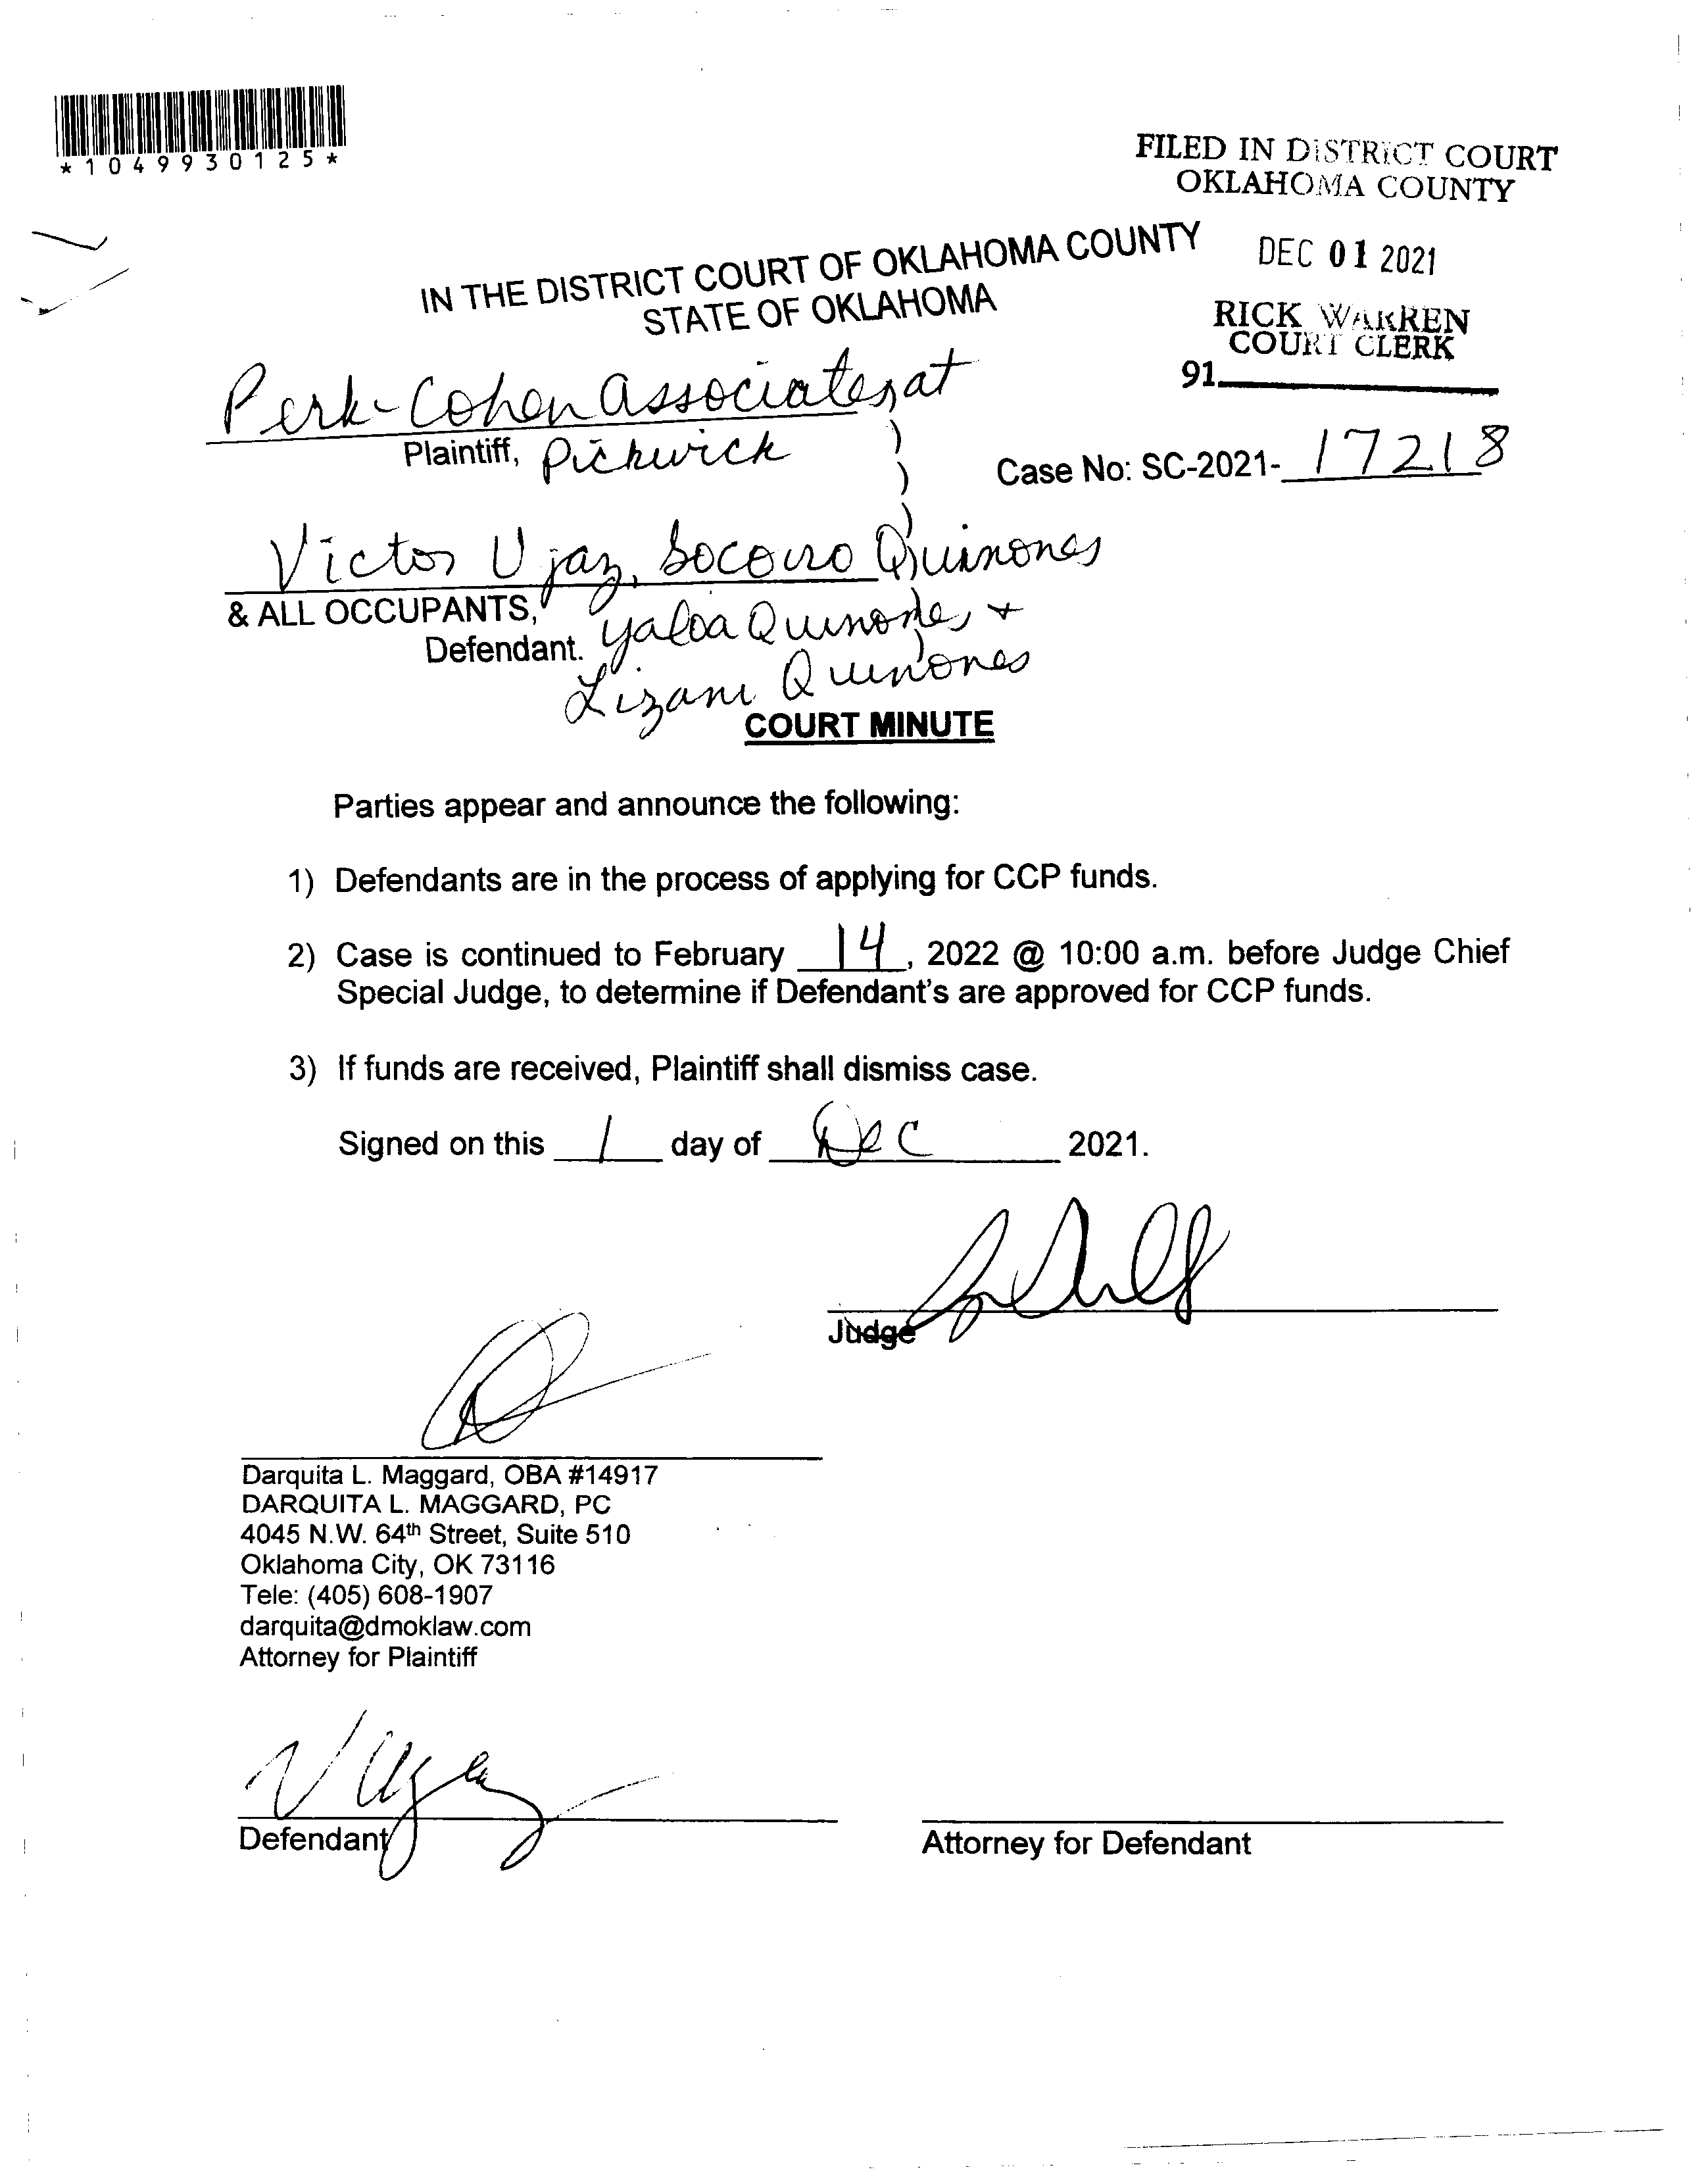 *1049930125*
FILED IN DISTRICT COURT
OKLAHOMA COUNTY
DEC 01 2021
RICK WARREN
COURT CLERK
91
IN THE DISTRICT COURT OF OKLAHOMA COUNTY
STATE OF OKLAHOMA
Perk-Cohen Associates at
Plaintiff, Pickwick
)
)
)
Case No: SC-2021- 17218
Victor Ujaz, Socorro Quinones
& ALL OCCUPANTS, Quinones, +
Defendant.
)
Quinones
COURT MINUTE
Parties appear and announce the following:
1) Defendants are in the process of applying for CCP funds.
2) Case is continued to February 14, 2022 @ 10:00 a.m. before Judge Chief
Special Judge, to determine if Defendant's are approved for CCP funds.
3) If funds are received, Plaintiff shall dismiss case.
Signed on this 1 day of Dec 2021.
Judge
Darquita L. Maggard, OBA #14917
DARQUITA L. MAGGARD, PC
4045 N.W. 64th Street, Suite 510
Oklahoma City, OK 73116
Tele: (405) 608-1907
darquita@dmoklaw.com
Attorney for Plaintiff
Defendant
Attorney for Defendant